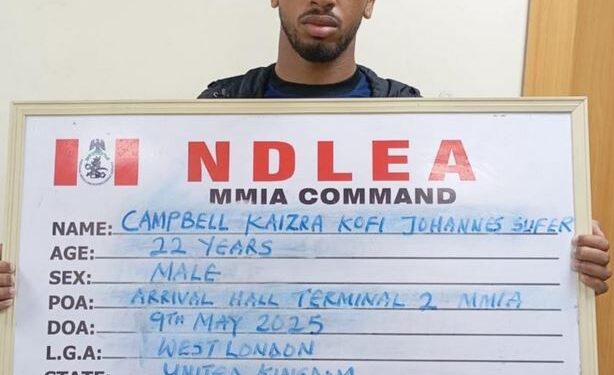 NDLEA
MMIA COMMAND
NAME: CAMPBELL KAIZRA KOFI JOHANNES SLIFER
AGE: 22 YEARS
SEX: MALE
POA: ARRIVAL HALL TERMINAL 2 MMIA
DOA: 9TH MAY 2025
L.G.A: WEST LONDON
STATE: UNITED KINGDOM